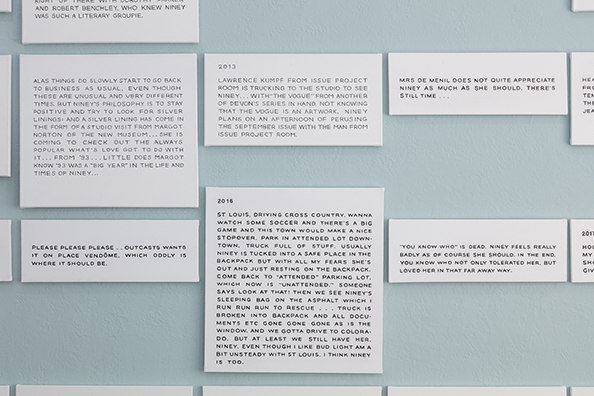 RIGHT UP THERE WITH DOROTHY PARKER
AND ROBERT BENCHLEY, WHO KNEW NINEY
WAS SUCH A LITERARY GROUPIE.
ALAS THINGS DO SLOWLY START TO GO BACK
TO BUSINESS AS USUAL, EVEN THOUGH
THESE ARE UNUSUAL AND VERY DIFFERENT
TIMES, BUT NINEY'S PHILOSOPHY IS TO STAY
POSITIVE AND TRY TO LOOK FOR SILVER
LININGS: AND A SILVER LINING HAS COME IN
THE FORM OF A STUDIO VISIT FROM MARGOT
NORTON OF THE NEW MUSEUM... SHE IS
COMING TO CHECK OUT THE ALWAYS
POPULAR WHAT'S LOVE GOT TO DO WITH
IT... FROM '93... LITTLE DOES MARGOT
KNOW '93 WAS A "BIG YEAR" IN THE LIFE AND
TIMES OF NINEY...
2013
LAWRENCE KUMPF FROM ISSUE PROJECT
ROOM IS TRUCKING TO THE STUDIO TO SEE
NINEY... WITH "THE VOGUE" FROM ANOTHER
OF DEVON'S SERIES IN HAND, NOT KNOWING
THAT THE VOGUE IS AN ARTWORK, NINEY
PLANS ON AN AFTERNOON OF PERUSING
THE SEPTEMBER ISSUE WITH THE MAN FROM
ISSUE PROJECT ROOM.
MRS DE MENIL DOES NOT QUITE APPRECIATE
NINEY AS MUCH AS SHE SHOULD. THERE'S
STILL TIME . . .
PLEASE PLEASE PLEASE . . OUTCASTS WANTS
IT ON PLACE VENDÔME. WHICH ODDLY IS
WHERE IT SHOULD BE.
2016
ST LOUIS, DRIVING CROSS COUNTRY, WANNA
WATCH SOME SOCCER AND THERE'S A BIG
GAME AND THIS TOWN WOULD MAKE A NICE
STOPOVER. PARK IN ATTENDED LOT DOWN-
TOWN, TRUCK FULL OF STUFF. USUALLY
NINEY IS TUCKED INTO A SAFE PLACE IN THE
BACKPACK BUT WITH ALL MY FEARS SHE'S
OUT AND JUST RESTING ON THE BACKPACK.
COME BACK TO "ATTENDED" PARKING LOT,
WHICH NOW IS "UNATTENDED." SOMEONE
SAYS LOOK AT THAT! THEN WE SEE NINEY'S
SLEEPING BAG ON THE ASPHALT WHICH I
RUN RUN RUN TO RESCUE . . . TRUCK IS
BROKEN INTO BACKPACK AND ALL DOCU-
MENTS ETC GONE GONE GONE AS IS THE
WINDOW, AND WE GOTTA DRIVE TO COLORA-
DO, BUT AT LEAST WE STILL HAVE HER,
NINEY, EVEN THOUGH I LIKE BUD LIGHT AM A
BIT UNSTEADY WITH ST LOUIS. I THINK NINEY
IS TOO.
"YOU KNOW WHO" IS DEAD. NINEY FEELS REALLY
BADLY AS OF COURSE SHE SHOULD. IN THE END,
YOU KNOW WHO NOT ONLY TOLERATED HER, BUT
LOVED HER IN THAT FAR AWAY WAY.
2017